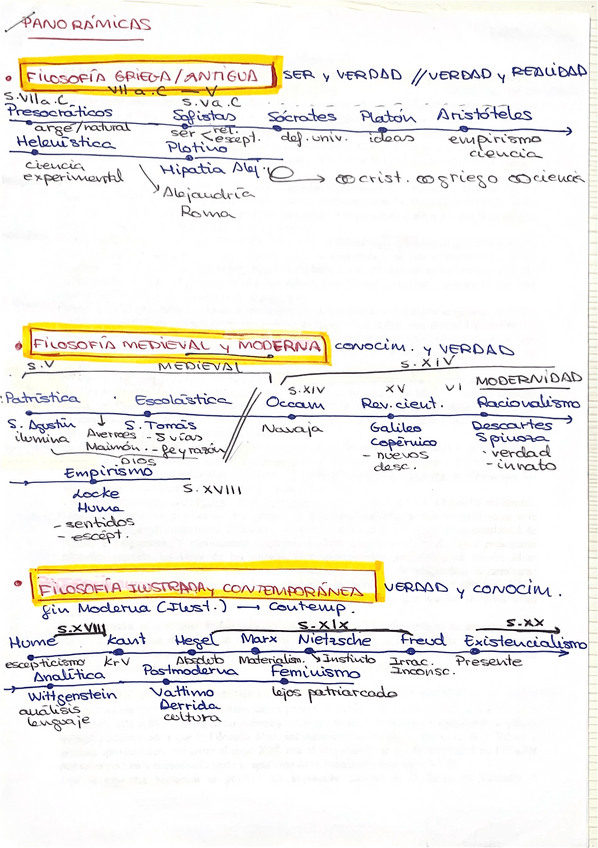 PANORÁMICAS
• FILOSOFÍA GRIEGA/ANTIGUA SER y VERDAD // VERDAD y REALIDAD
VII a.C — V
S.VII a.C. S.V a.C
Presocráticos Sofistas Sócrates Platón Aristóteles
argé/natural ser < rel. escépt. def. univ. ideas empirismo ciencia
Helenística Plotino
ciencia experimental Hipatia Alej. → crist. griego ciencia
Alejandría
Roma
• FILOSOFÍA MEDIEVAL y MODERNA CONOCIM. y VERDAD
S.V MEDIEVAL S.XIV
S.XIV XV VI MODERNIDAD
Patrística Escolástica Occam Rev. cient. Racionalismo
S. Agustín S. Tomás Navaja Galileo Descartes
ilumina Averroes - 5 vías Copérnico Spinoza
Maimón. - fe y razón - nuevos · verdad
DIOS desc. - innato
Empirismo
Locke S.XVIII
Hume
- sentidos
- escépt.
• FILOSOFÍA ILUSTRADA y CONTEMPORÁNEA VERDAD y CONOCIM.
fin Moderna (Ilust.) → Contemp.
S.XVIII S.XIX S.XX
Hume Kant Hegel Marx Nietzsche Freud Existencialismo
escepticismo KrV Absoluto Materialism. → Instinto Irrac. Presente
Inconsc.
Analítica Postmoderna Feminismo
Wittgenstein Vattimo lejos patriarcado
análisis Derrida
lenguaje cultura